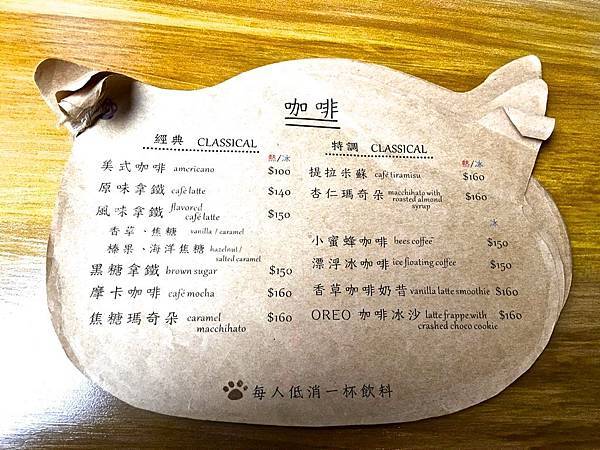 咖啡
經典 CLASSICAL
熱/冰
美式咖啡 americano $100
原味拿鐵 café latte $140
風味拿鐵 flavored café latte $150
香草、焦糖 vanilla / caramel
榛果、海洋焦糖 hazelnut / salted caramel
黑糖拿鐵 brown sugar $150
摩卡咖啡 café mocha $160
焦糖瑪奇朵 caramel macchihato $160
特調 CLASSICAL
熱/冰
提拉米蘇 café tiramisu $160
杏仁瑪奇朵 macchihato with roasted almond syrup $160
冰
小蜜蜂咖啡 bees coffee $150
漂浮冰咖啡 ice floating coffee $150
香草咖啡奶昔 vanilla latte smoothie $160
OREO 咖啡冰沙 latte frappe with crashed choco cookie $160
每人低消一杯飲料